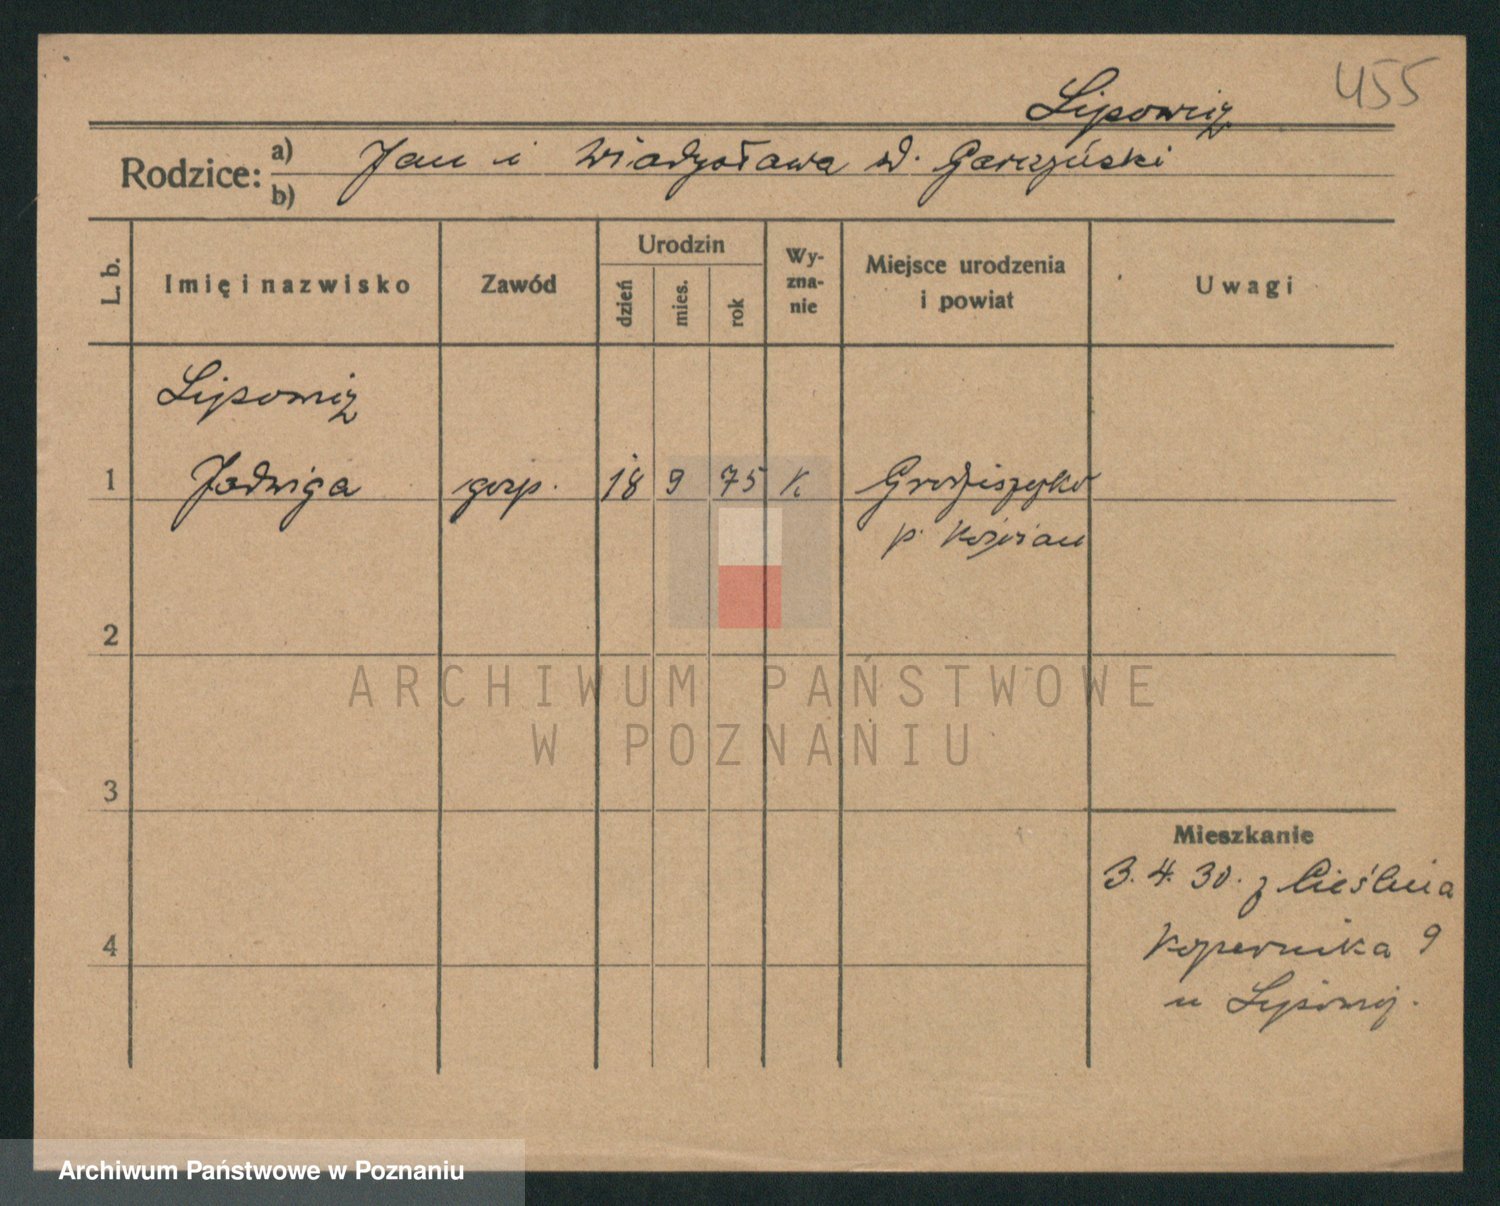 455
Lipowicz
Rodzice: a) Jan i Władysława d. Garczyński
b)
L. b.
Imię i nazwisko
Zawód
Urodzin
dzień
mies.
rok
Wy-
zna-
nie
Miejsce urodzenia
i powiat
Uwagi
Lipowicz
1 Jadwiga gosp. 18 9 75 k Grodziszczko
p. Kościan
2
3
4
Mieszkanie
3.4.30. z Cieślina
Kopernika 9
u Lipowicz.
ARCHIWUM PAŃSTWOWE
W POZNANIU
Archiwum Państwowe w Poznaniu